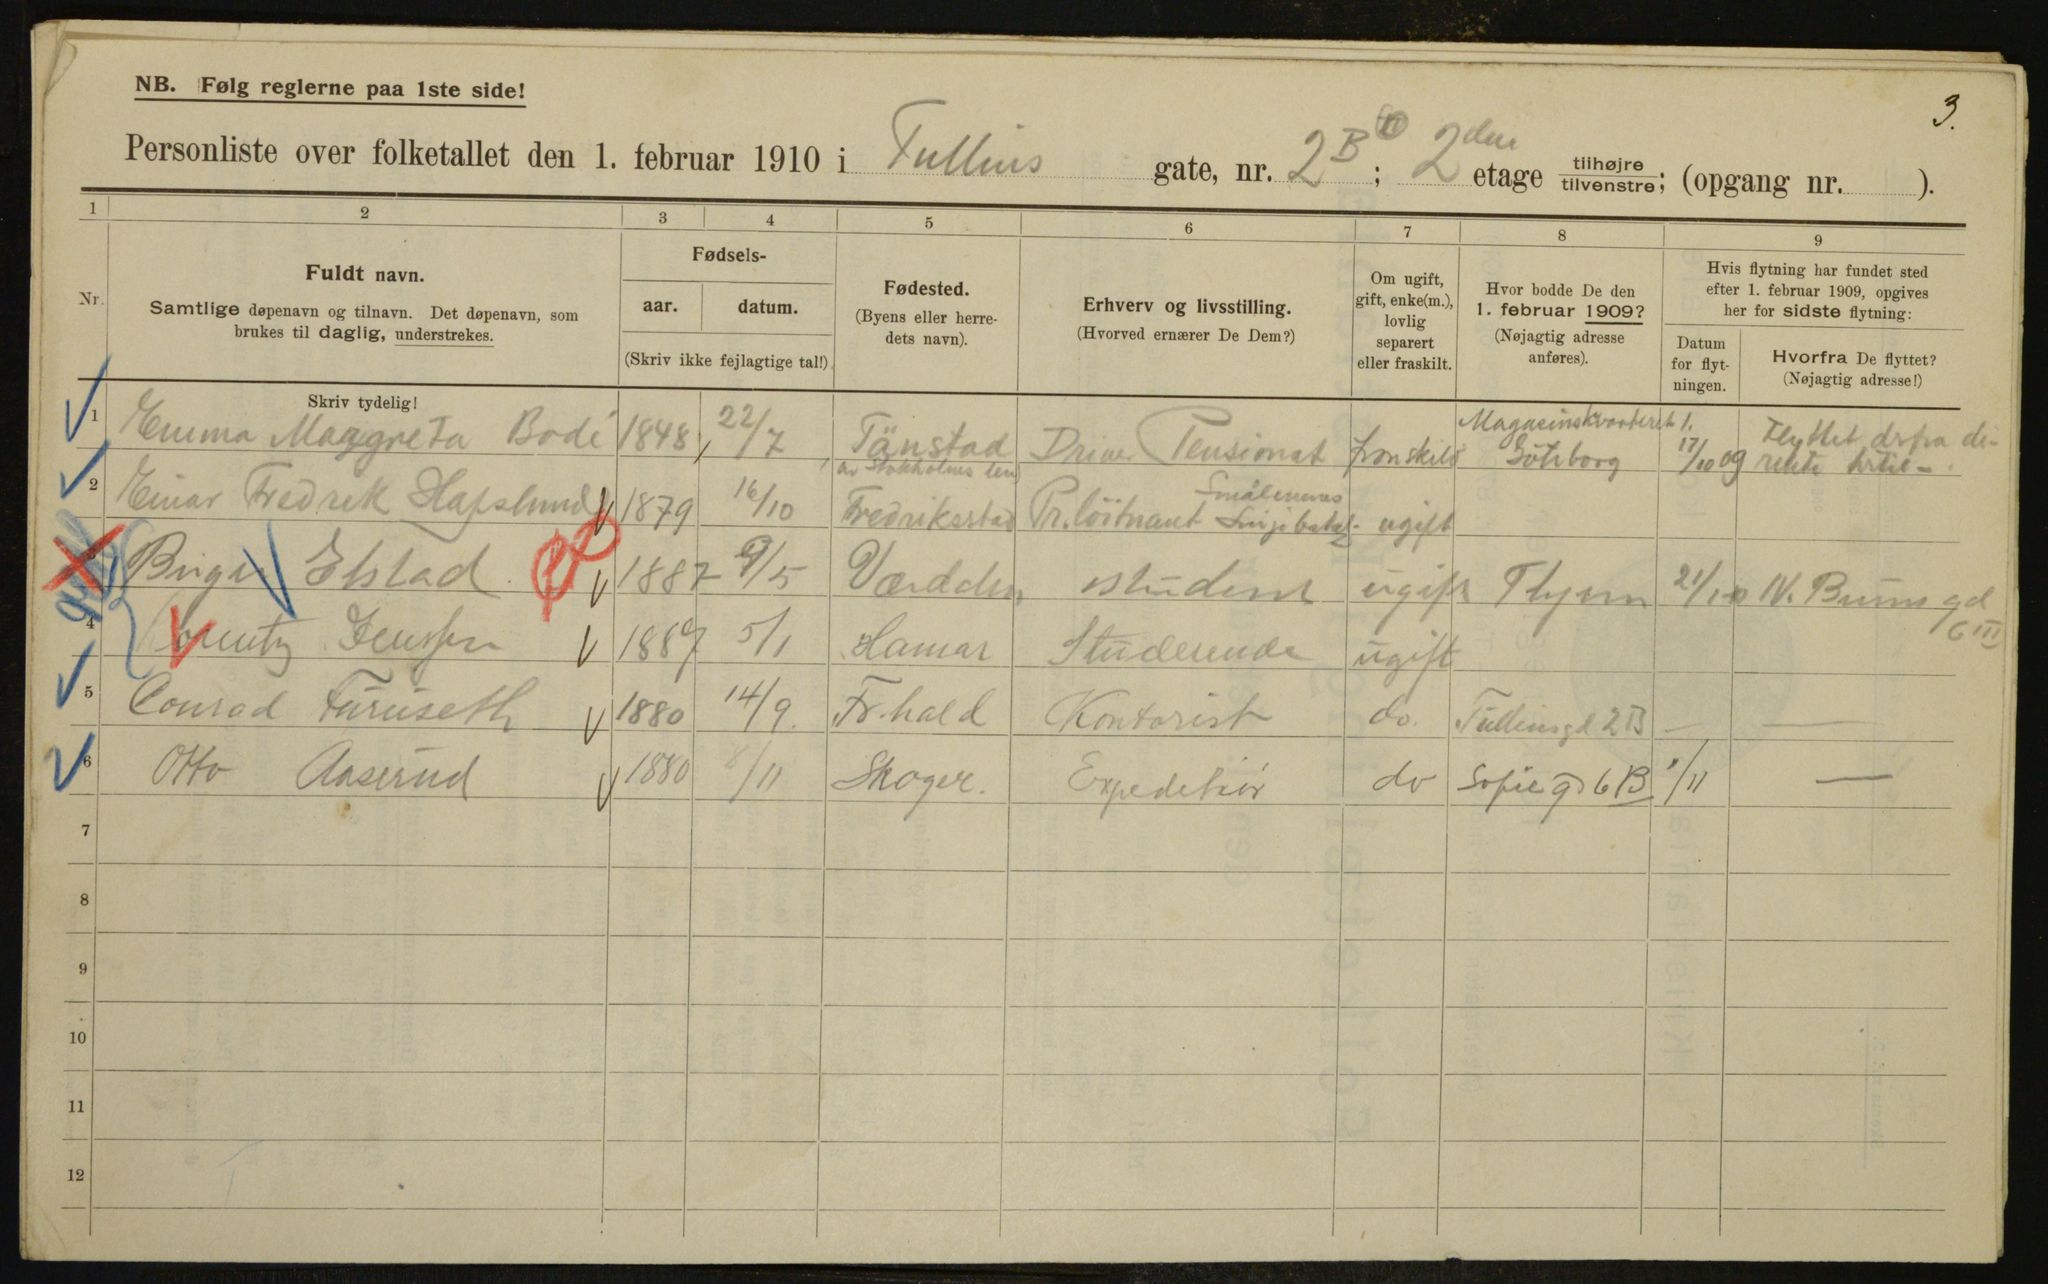 3.
NB. Følg reglerne paa 1ste side!
Personliste over folketallet den 1. februar 1910 i Tullins gate, nr. 2B; 2den etage tilhøjre tilvenstre; (opgang nr. ).
1 2 3 4 5 6 7 8 9
Nr.
Fuldt navn.
Samtlige døpenavn og tilnavn. Det døpenavn, som
brukes til daglig, understrekes.
Skriv tydelig!
Fødsels-
aar. datum.
(Skriv ikke fejlagtige tal!)
Fødested.
(Byens eller herre-
dets navn).
Erhverv og livsstilling.
(Hvorved ernærer De Dem?)
Om ugift,
gift, enke(m.),
lovlig
separert
eller fraskilt.
Hvor bodde De den
1. februar 1909?
(Nøjagtig adresse
anføres).
Hvis flytning har fundet sted
efter 1. februar 1909, opgives
her for sidste flytning:
Datum
for flyt-
ningen.
Hvorfra De flyttet?
(Nøjagtig adresse!)
1 Emma Margreta Bodé 1848, 22/7 Tänstad av Stokholms len Driver Pensionat fraskild Magasinskvarteret 1. Göteborg 17/10 09 Flyttet derfra di-
rekte hertil.
2 Einar Fredrik Hafslund 1879 16/10 Fredriksstad Pr.löitnant Smålenenes Linjebatal. ugift
3 Birger Elstad 1887 9/5 student ugift 21/10 N. Bruns gd
6 III
4 Lorentz Jenssen 1887 5/1 Hamar Studerende ugift
5 Conrad Furuseth 1880 14/9. Fr.hald Kontorist do. Tullinsgd 2B — —
6 Otto Aaserud 1880 8/11 Skoger. Expeditør do Sofie gd 6B 1/11 —
7
8
9
10
11
12